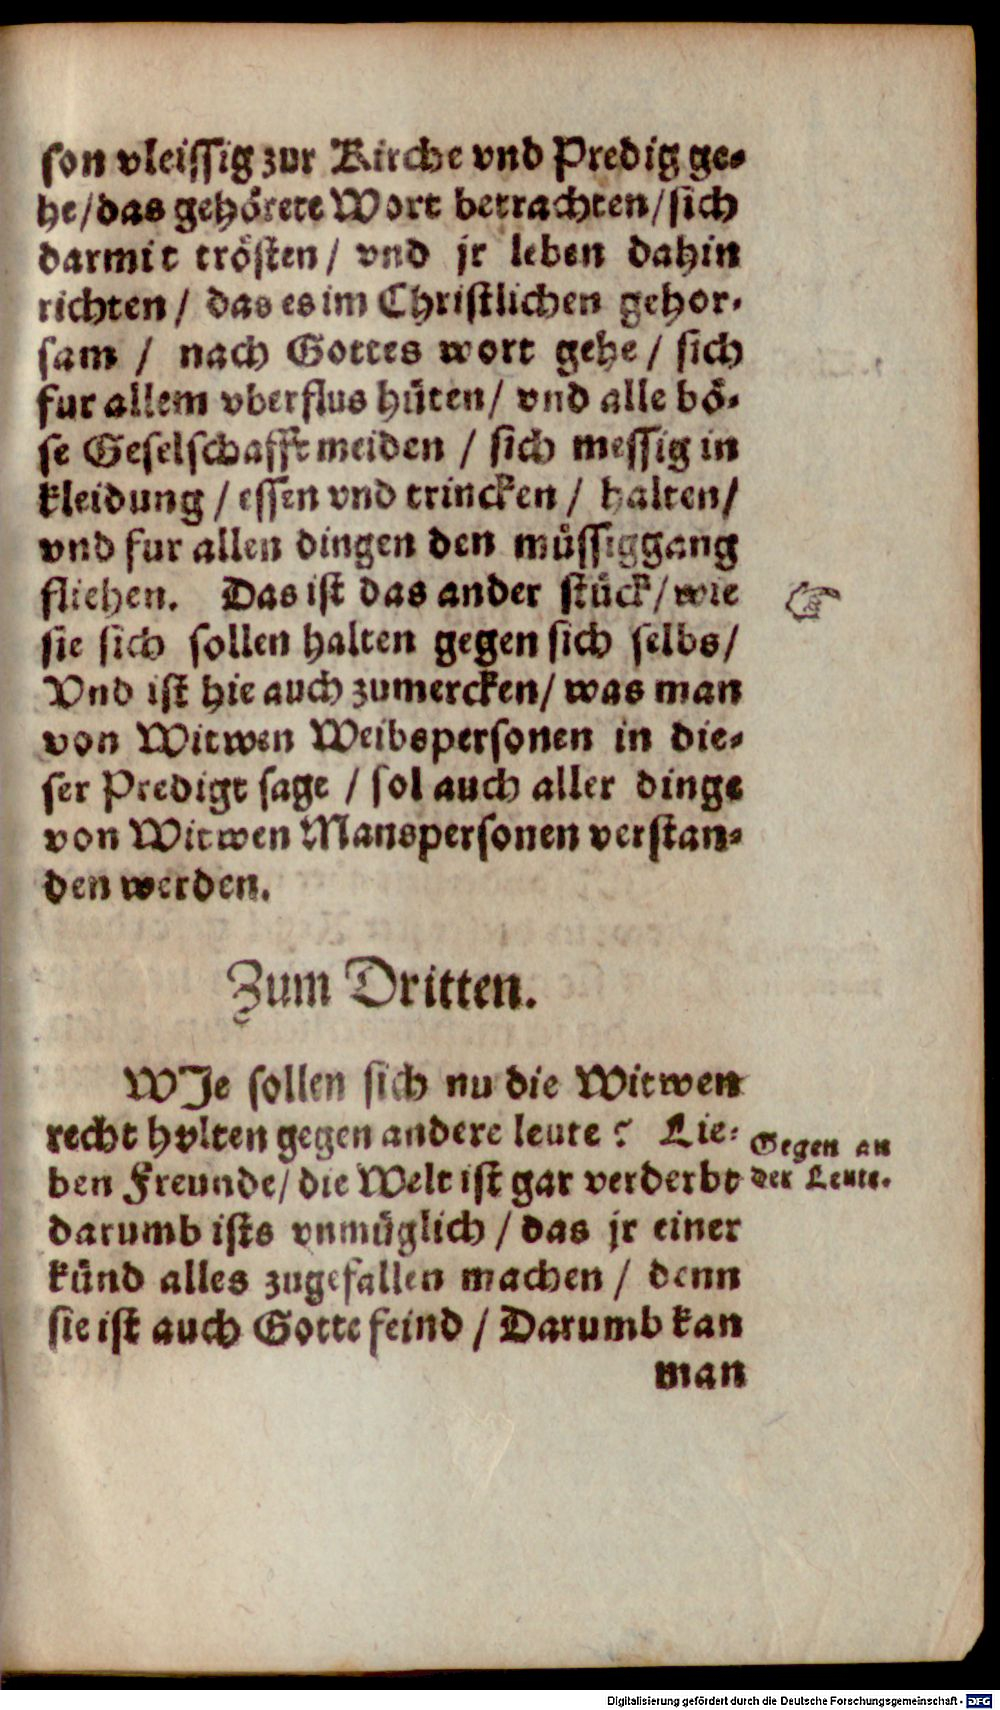 son vleissig zur Kirche vnd Predig ge-
he/das gehörete Wort betrachten/sich
darmit trösten/ vnd jr leben dahin
richten/ das es im Christlichen gehor-
sam / nach Gottes wort gehe/ sich
fur allem vberflus hüten/ vnd alle bö-
se Geselschafft meiden / sich messig in
kleidung / essen vnd trincken / halten/
vnd fur allen dingen den müssiggang
fliehen. Das ist das ander stück/ wie ☞
sie sich sollen halten gegen sich selbs/
Vnd ist hie auch zumercken/ was man
von Witwen Weibspersonen in die-
ser Predigt sage / sol auch aller dinge
von Witwen Manspersonen verstan-
den werden.
Zum Dritten.
WJe sollen sich nu die Witwen
recht hvlten gegen andere leute? Lie-
ben Freunde/ die Welt ist gar verderbt
darumb ists vnmüglich / das jr einer
künd alles zugefallen machen / denn
sie ist auch Gotte feind / Darumb kan
man
Gegen an
der Leute.
Digitalisierung gefördert durch die Deutsche Forschungsgemeinschaft - DFG